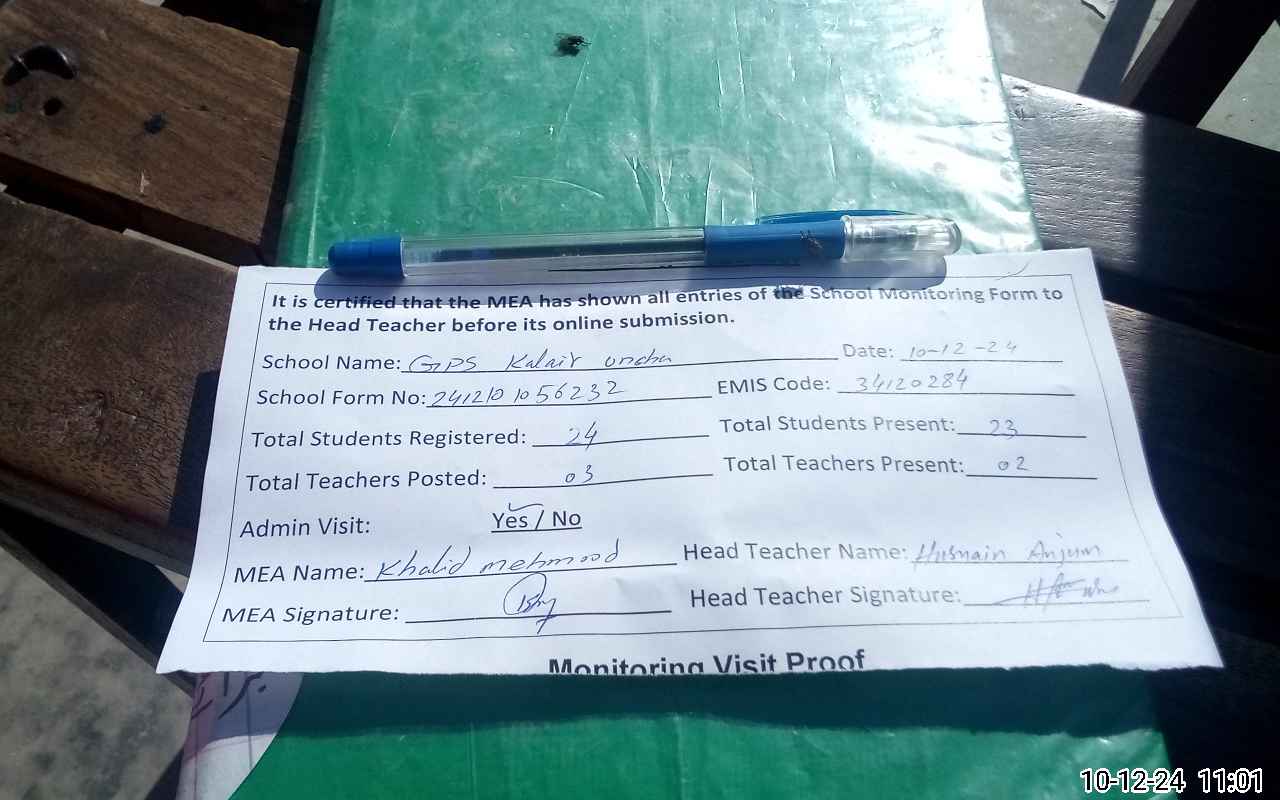 It is certified that the MEA has shown all entries of the School Monitoring Form to
the Head Teacher before its online submission.
School Name: GPS Kalair uncha Date: 10-12-24
School Form No: 241210 1056232 EMIS Code: 34120284
Total Students Registered: 24 Total Students Present: 23
Total Teachers Posted: 03 Total Teachers Present: 02
Admin Visit: Yes / No
MEA Name: Khalid mehmood Head Teacher Name: Husnain Anjum
MEA Signature: Head Teacher Signature:
Monitoring Visit Proof
10-12-24 11:01